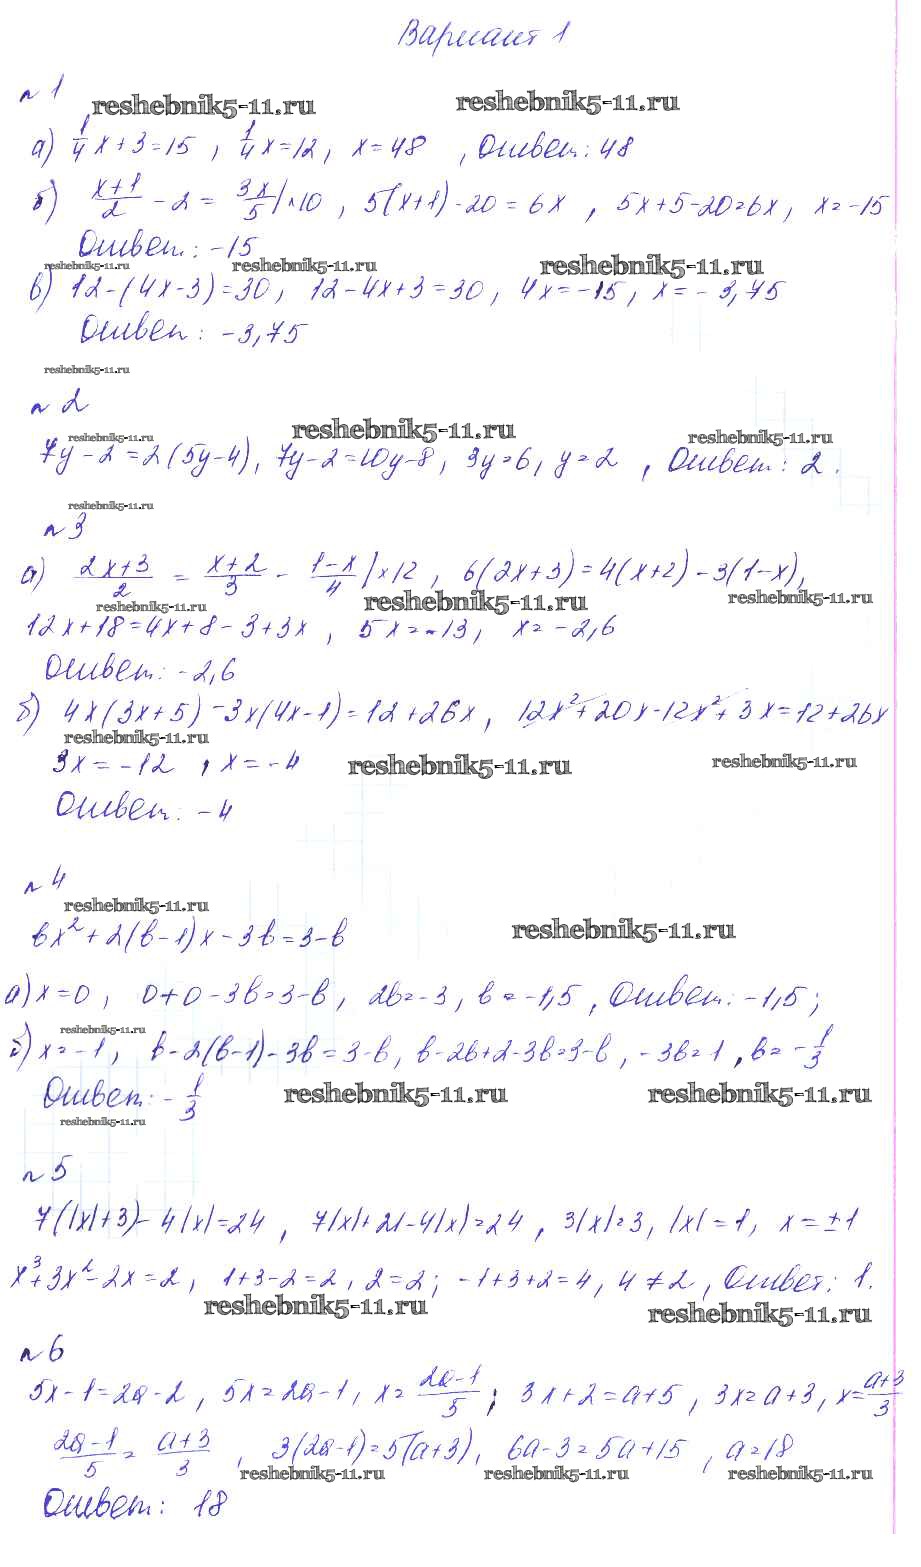 Вариант 1
№ 1
reshebnik5-11.ru reshebnik5-11.ru
а) 1/4 x + 3 = 15 , 1/4 x = 12 , x = 48 , Ответ: 48
б) (x+1)/2 - 2 = 3x/5 | ×10 , 5(x+1) - 20 = 6x , 5x + 5 - 20 = 6x , x = -15
Ответ: -15
reshebnik5-11.ru reshebnik5-11.ru reshebnik5-11.ru
в) 12 - (4x - 3) = 30 , 12 - 4x + 3 = 30 , 4x = -15 , x = -3,75
Ответ: -3,75
reshebnik5-11.ru
№ 2
reshebnik5-11.ru reshebnik5-11.ru reshebnik5-11.ru
7y - 2 = 2(5y - 4) , 7y - 2 = 10y - 8 , 3y = 6 , y = 2 , Ответ: 2.
reshebnik5-11.ru
№ 3
а) (2x+3)/2 = (x+2)/3 - (1-x)/4 | ×12 , 6(2x+3) = 4(x+2) - 3(1-x),
reshebnik5-11.ru reshebnik5-11.ru reshebnik5-11.ru
12x + 18 = 4x + 8 - 3 + 3x , 5x = -13 , x = -2,6
Ответ: -2,6
б) 4x(3x+5) - 3x(4x-1) = 12 + 26x , 12x² + 20x - 12x² + 3x = 12 + 26x
reshebnik5-11.ru
3x = -12 , x = -4 reshebnik5-11.ru reshebnik5-11.ru
Ответ: -4
№ 4
reshebnik5-11.ru
bx² + 2(b-1)x - 3b = 3 - b reshebnik5-11.ru
а) x = 0 , 0 + 0 - 3b = 3 - b , 2b = -3 , b = -1,5 , Ответ: -1,5 ;
reshebnik5-11.ru
б) x = -1 , b - 2(b-1) - 3b = 3 - b , b - 2b + 2 - 3b = 3 - b , -3b = 1 , b = -1/3
Ответ: -1/3 reshebnik5-11.ru reshebnik5-11.ru
reshebnik5-11.ru
№ 5
7(|x|+3) - 4|x| = 24 , 7|x| + 21 - 4|x| = 24 , 3|x| = 3 , |x| = 1 , x = ±1
x³ + 3x² - 2x = 2 , 1 + 3 - 2 = 2 , 2 = 2 ; -1 + 3 + 2 = 4 , 4 ≠ 2 , Ответ: 1.
reshebnik5-11.ru reshebnik5-11.ru
№ 6
5x - 1 = 2a - 2 , 5x = 2a - 1 , x = (2a-1)/5 ; 3x + 2 = a + 5 , 3x = a + 3 , x = (a+3)/3
(2a-1)/5 = (a+3)/3 , 3(2a-1) = 5(a+3) , 6a - 3 = 5a + 15 , a = 18
reshebnik5-11.ru reshebnik5-11.ru reshebnik5-11.ru
Ответ: 18